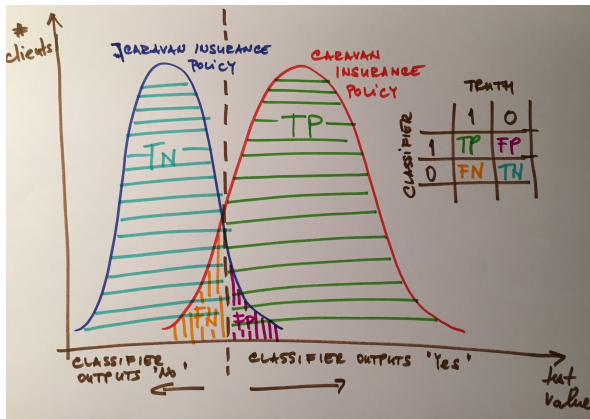 #
clients
¬CARAVAN INSURANCE
POLICY
CARAVAN
INSURANCE
POLICY
TN
TP
FN
FP
TRUTH
1 0
CLASSIFIER
1 TP FP
0 FN TN
CLASSIFIER
OUTPUTS "No"
CLASSIFIER OUTPUTS "Yes"
test
value